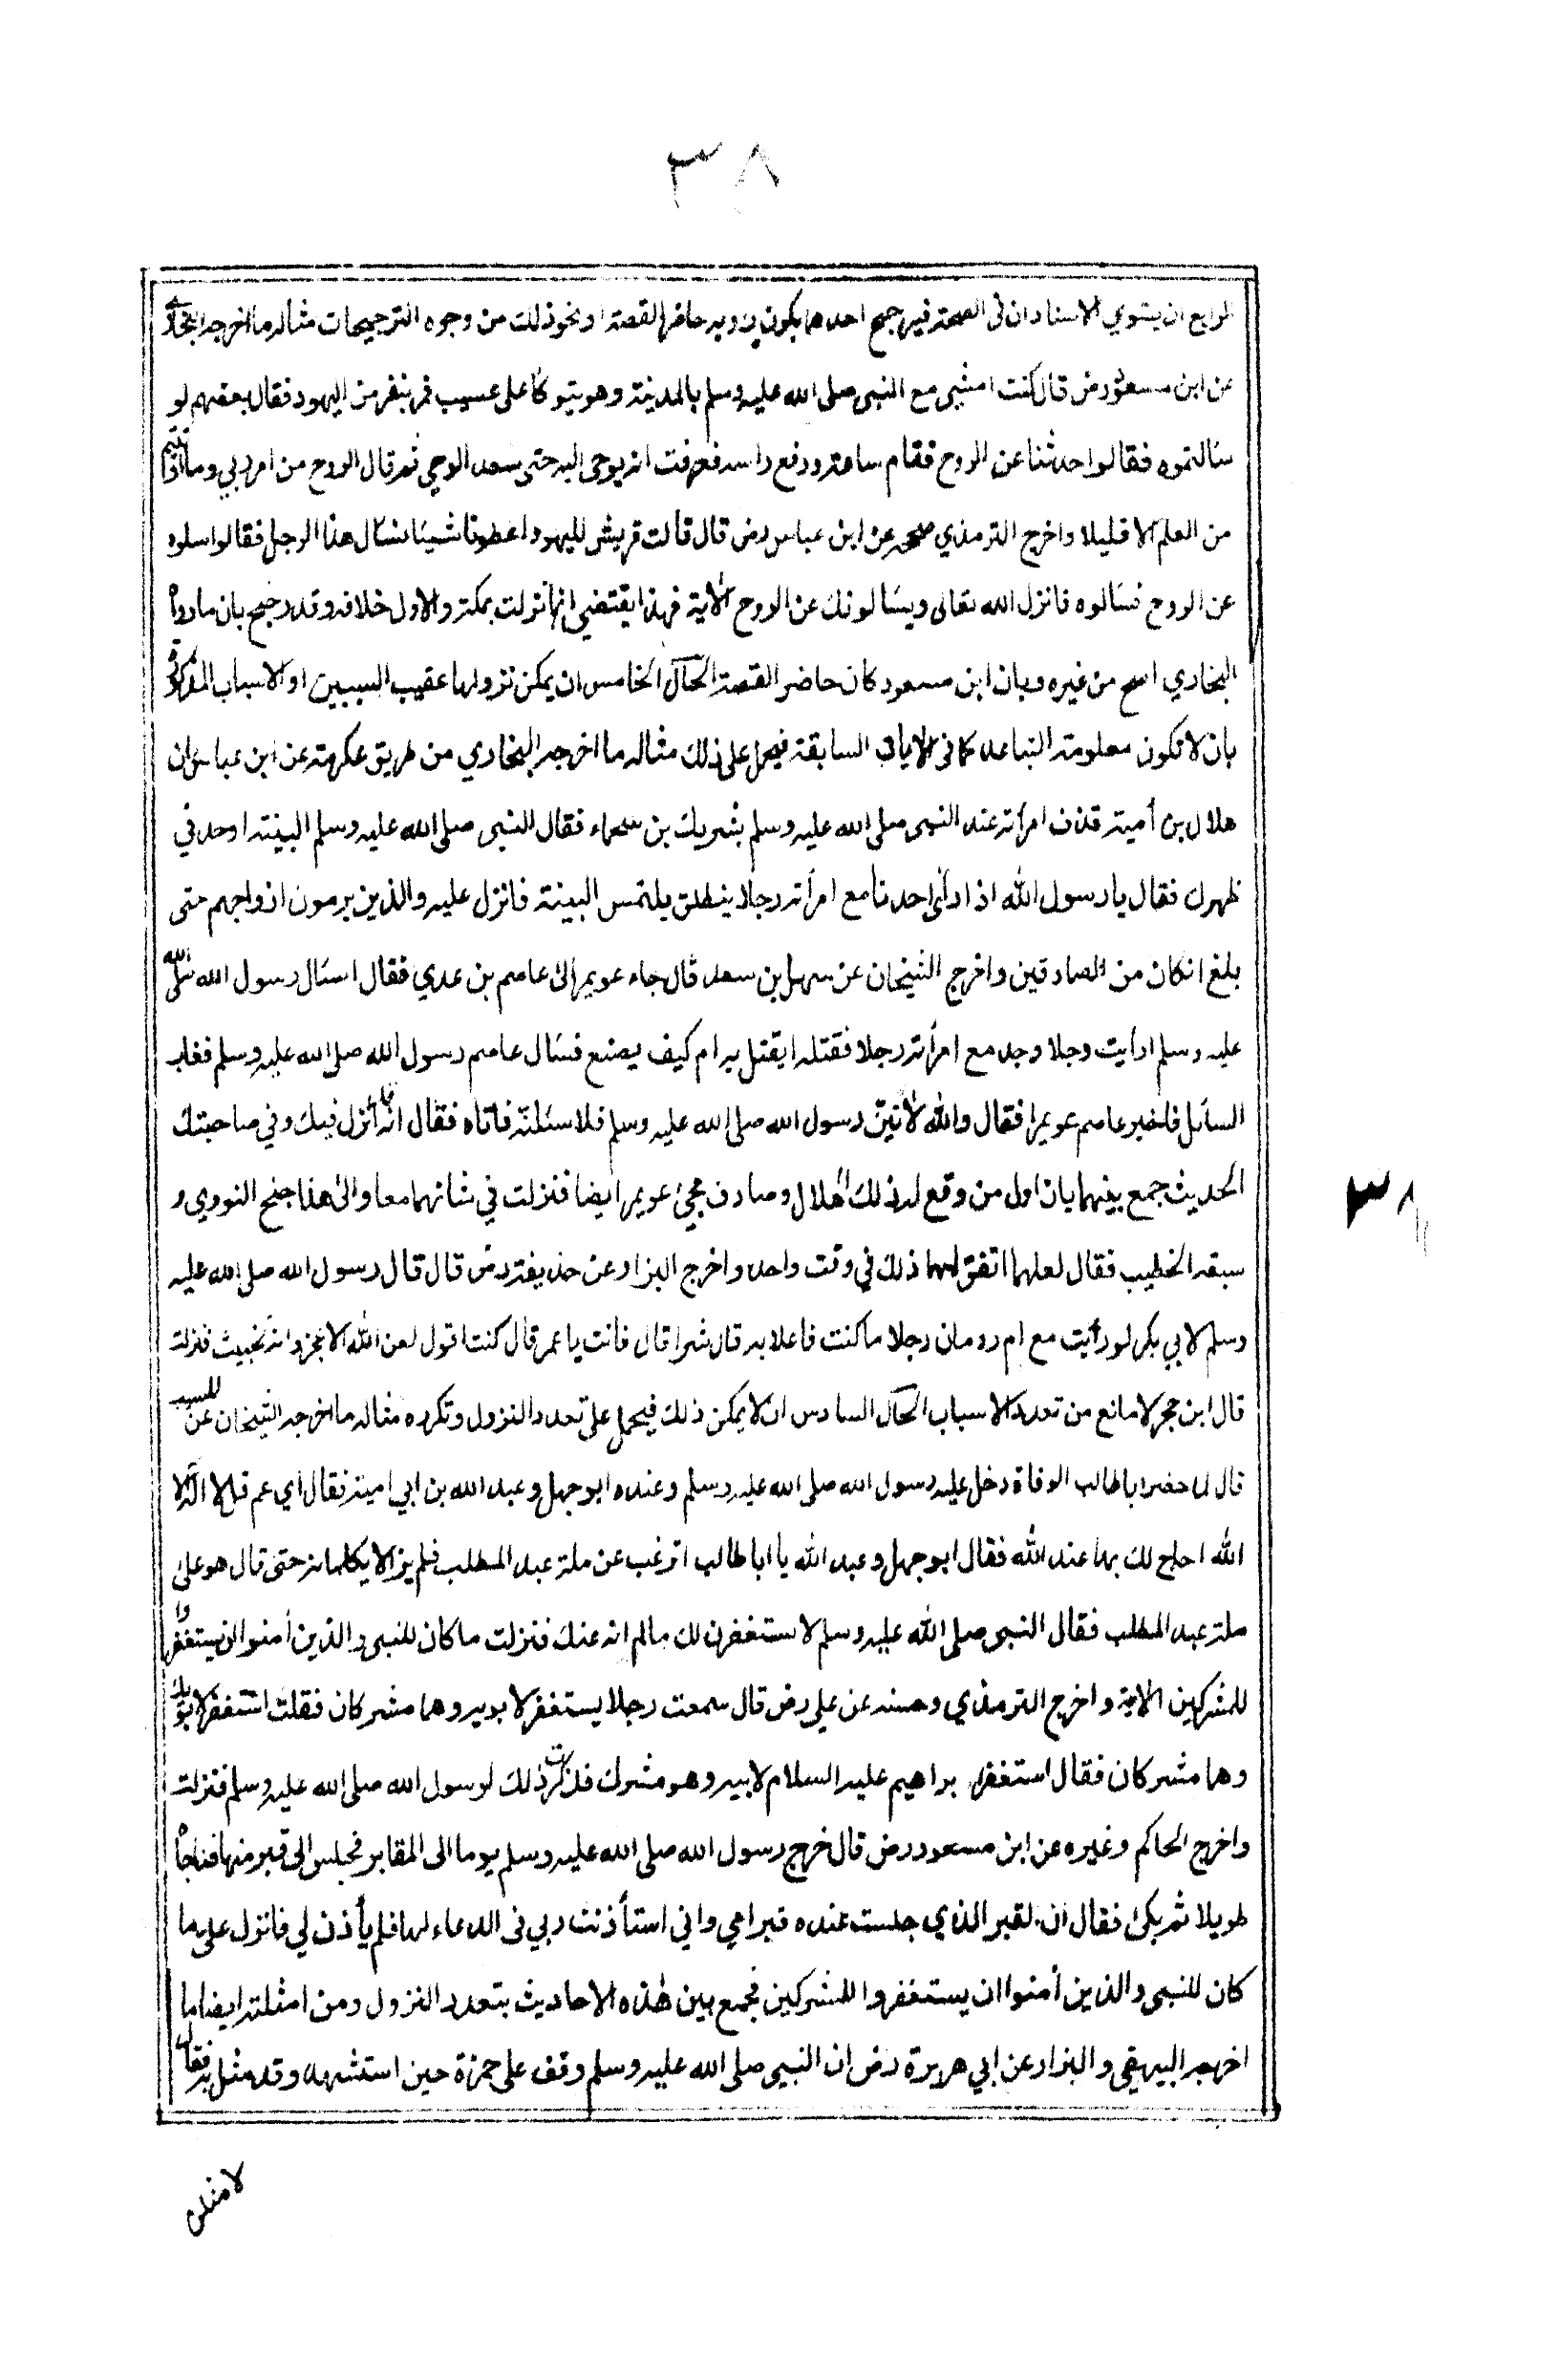 ٣٨
الرابع ان يستوي الاسنادان فى الصحة فيرجح احدهما بكون راويه حاضر القصة او نحو ذلك من وجوه الترجيحات مثاله ما اخرجه البخاري
عن ابن مسعود رض قال كنت امشي مع النبي صلى الله عليه وسلم بالمدينة وهو يتوكأ على عسيب فمر بنفر من اليهود فقال بعضهم لو
سألتموه فقالوا حدثنا عن الروح فقام ساعة ورفع راسه فعرفت انه يوحى اليه حتى صعد الوحي ثم قال الروح من امر ربي وما اوتيتم
من العلم الا قليلا واخرج الترمذي صححه عن ابن عباس رض قال قالت قريش لليهود اعطونا شيئا نسأل هذا الرجل فقالوا سلوه
عن الروح فسألوه فانزل الله تعالى ويسألونك عن الروح الآية فهذا يقتضي انها نزلت بمكة والاول خلافه وقد رجح بان ما رواه
البخاري اصح من غيره وبان ابن مسعود كان حاضر القصة الحال الخامس ان يمكن نزولها عقيب السببين او الاسباب المذكورة
بان لا تكون معلومة التباعد كما فى الايات السابقة فيحمل على ذلك مثاله ما اخرجه البخاري من طريق عكرمة عن ابن عباس ان
هلال بن أمية قذف امرأته عند النبي صلى الله عليه وسلم بشريك بن سحماء فقال النبي صلى الله عليه وسلم البينة او حد في
ظهرك فقال يا رسول الله اذا رأى احدنا مع امرأته رجلا ينطلق يلتمس البينة فانزل عليه والذين يرمون ازواجهم حتى
بلغ انكان من الصادقين واخرج الشيخان عن سهل بن سعد قال جاء عويمر الى عاصم بن عدي فقال اسئال رسول الله صلى الله
عليه وسلم ارأيت رجلا وجد مع امرأته رجلا فقتله ايقتل به ام كيف يصنع فسأل عاصم رسول الله صلى الله عليه وسلم فعاب
السائل فاخبر عاصم عويمرا فقال والله لآتين رسول الله صلى الله عليه وسلم فلاسئلنه فاتاه فقال انه أنزل فيك وفي صاحبتك
الحديث جمع بينهما بان اول من وقع له ذلك هلال وصادف مجيئ عويمر ايضا فنزلت في شانهما معا والى هذا جنح النووي و
سبقه الخطيب فقال لعلهما اتفق لهما ذلك في وقت واحد واخرج البزار عن حذيفة رض قال قال رسول الله صلى الله عليه
وسلم لابي بكر لو رأيت مع ام رومان رجلا ما كنت فاعلا به قال شرا قال فانت يا عمر قال كنت اقول لعن الله الاعجز وانه لخبيث فنزلت
قال ابن حجر لا مانع من تعدد الاسباب الحال السادس ان لا يمكن ذلك فيحمل على تعدد النزول وتكرره مثاله ما اخرجه الشيخان عن المسيب
قال لما حضر ابا طالب الوفاة دخل عليه رسول الله صلى الله عليه وسلم وعنده ابو جهل وعبد الله بن ابي امية فقال أي عم قل لا اله الا
الله احاج لك بها عند الله فقال ابو جهل وعبد الله يا ابا طالب اترغب عن ملة عبد المطلب فلم يزالا يكلمانه حتى قال هو على
ملة عبد المطلب فقال النبي صلى الله عليه وسلم لاستغفرن لك ما لم انه عنك فنزلت ما كان للنبي والذين أمنوا ان يستغفروا
للمشركين الآية واخرج الترمذي وحسنه عن علي رض قال سمعت رجلا يستغفر لابويه وهما مشركان فقلت استغفر لابويك
وهما مشركان فقال استغفر ابراهيم عليه السلام لابيه وهو مشرك فذكرت ذلك لرسول الله صلى الله عليه وسلم فنزلت
واخرج الحاكم وغيره عن ابن مسعود رض قال خرج رسول الله صلى الله عليه وسلم يوما الى المقابر فجلس الى قبر منها فناجاه
طويلا ثم بكى فقال ان القبر الذي جلست عنده قبر امي واني استأذنت ربي فى الدعاء لها فلم يأذن لي فانزل علي ما
كان للنبي والذين أمنوا ان يستغفروا للمشركين فجمع بين هذه الاحاديث بتعدد النزول ومن امثلته ايضا ما
اخرجه البيهقي والبزار عن ابي هريرة رض ان النبي صلى الله عليه وسلم وقف على حمزة حين استشهد وقد مثل به فقال
لامثلن
٣٨